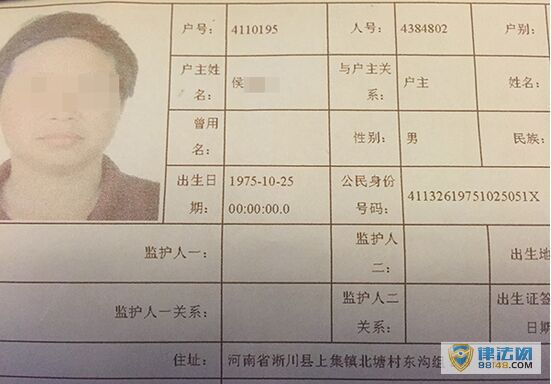 户号： 4110195 人号： 4384802 户别：
户主姓 侯 与户主关 户主 姓名：
名： 系：
曾用 性别： 男 民族：
名：
出生日 1975-10-25 公民身份 41132619751025051X
期： 00:00:00.0 号码：
监护人一： 监护人 出生地
二：
监护人一关系： 监护人二 出生证签
关系： 日期：
住址： 河南省淅川县上集镇北塘村东沟组
律法网
88148.com